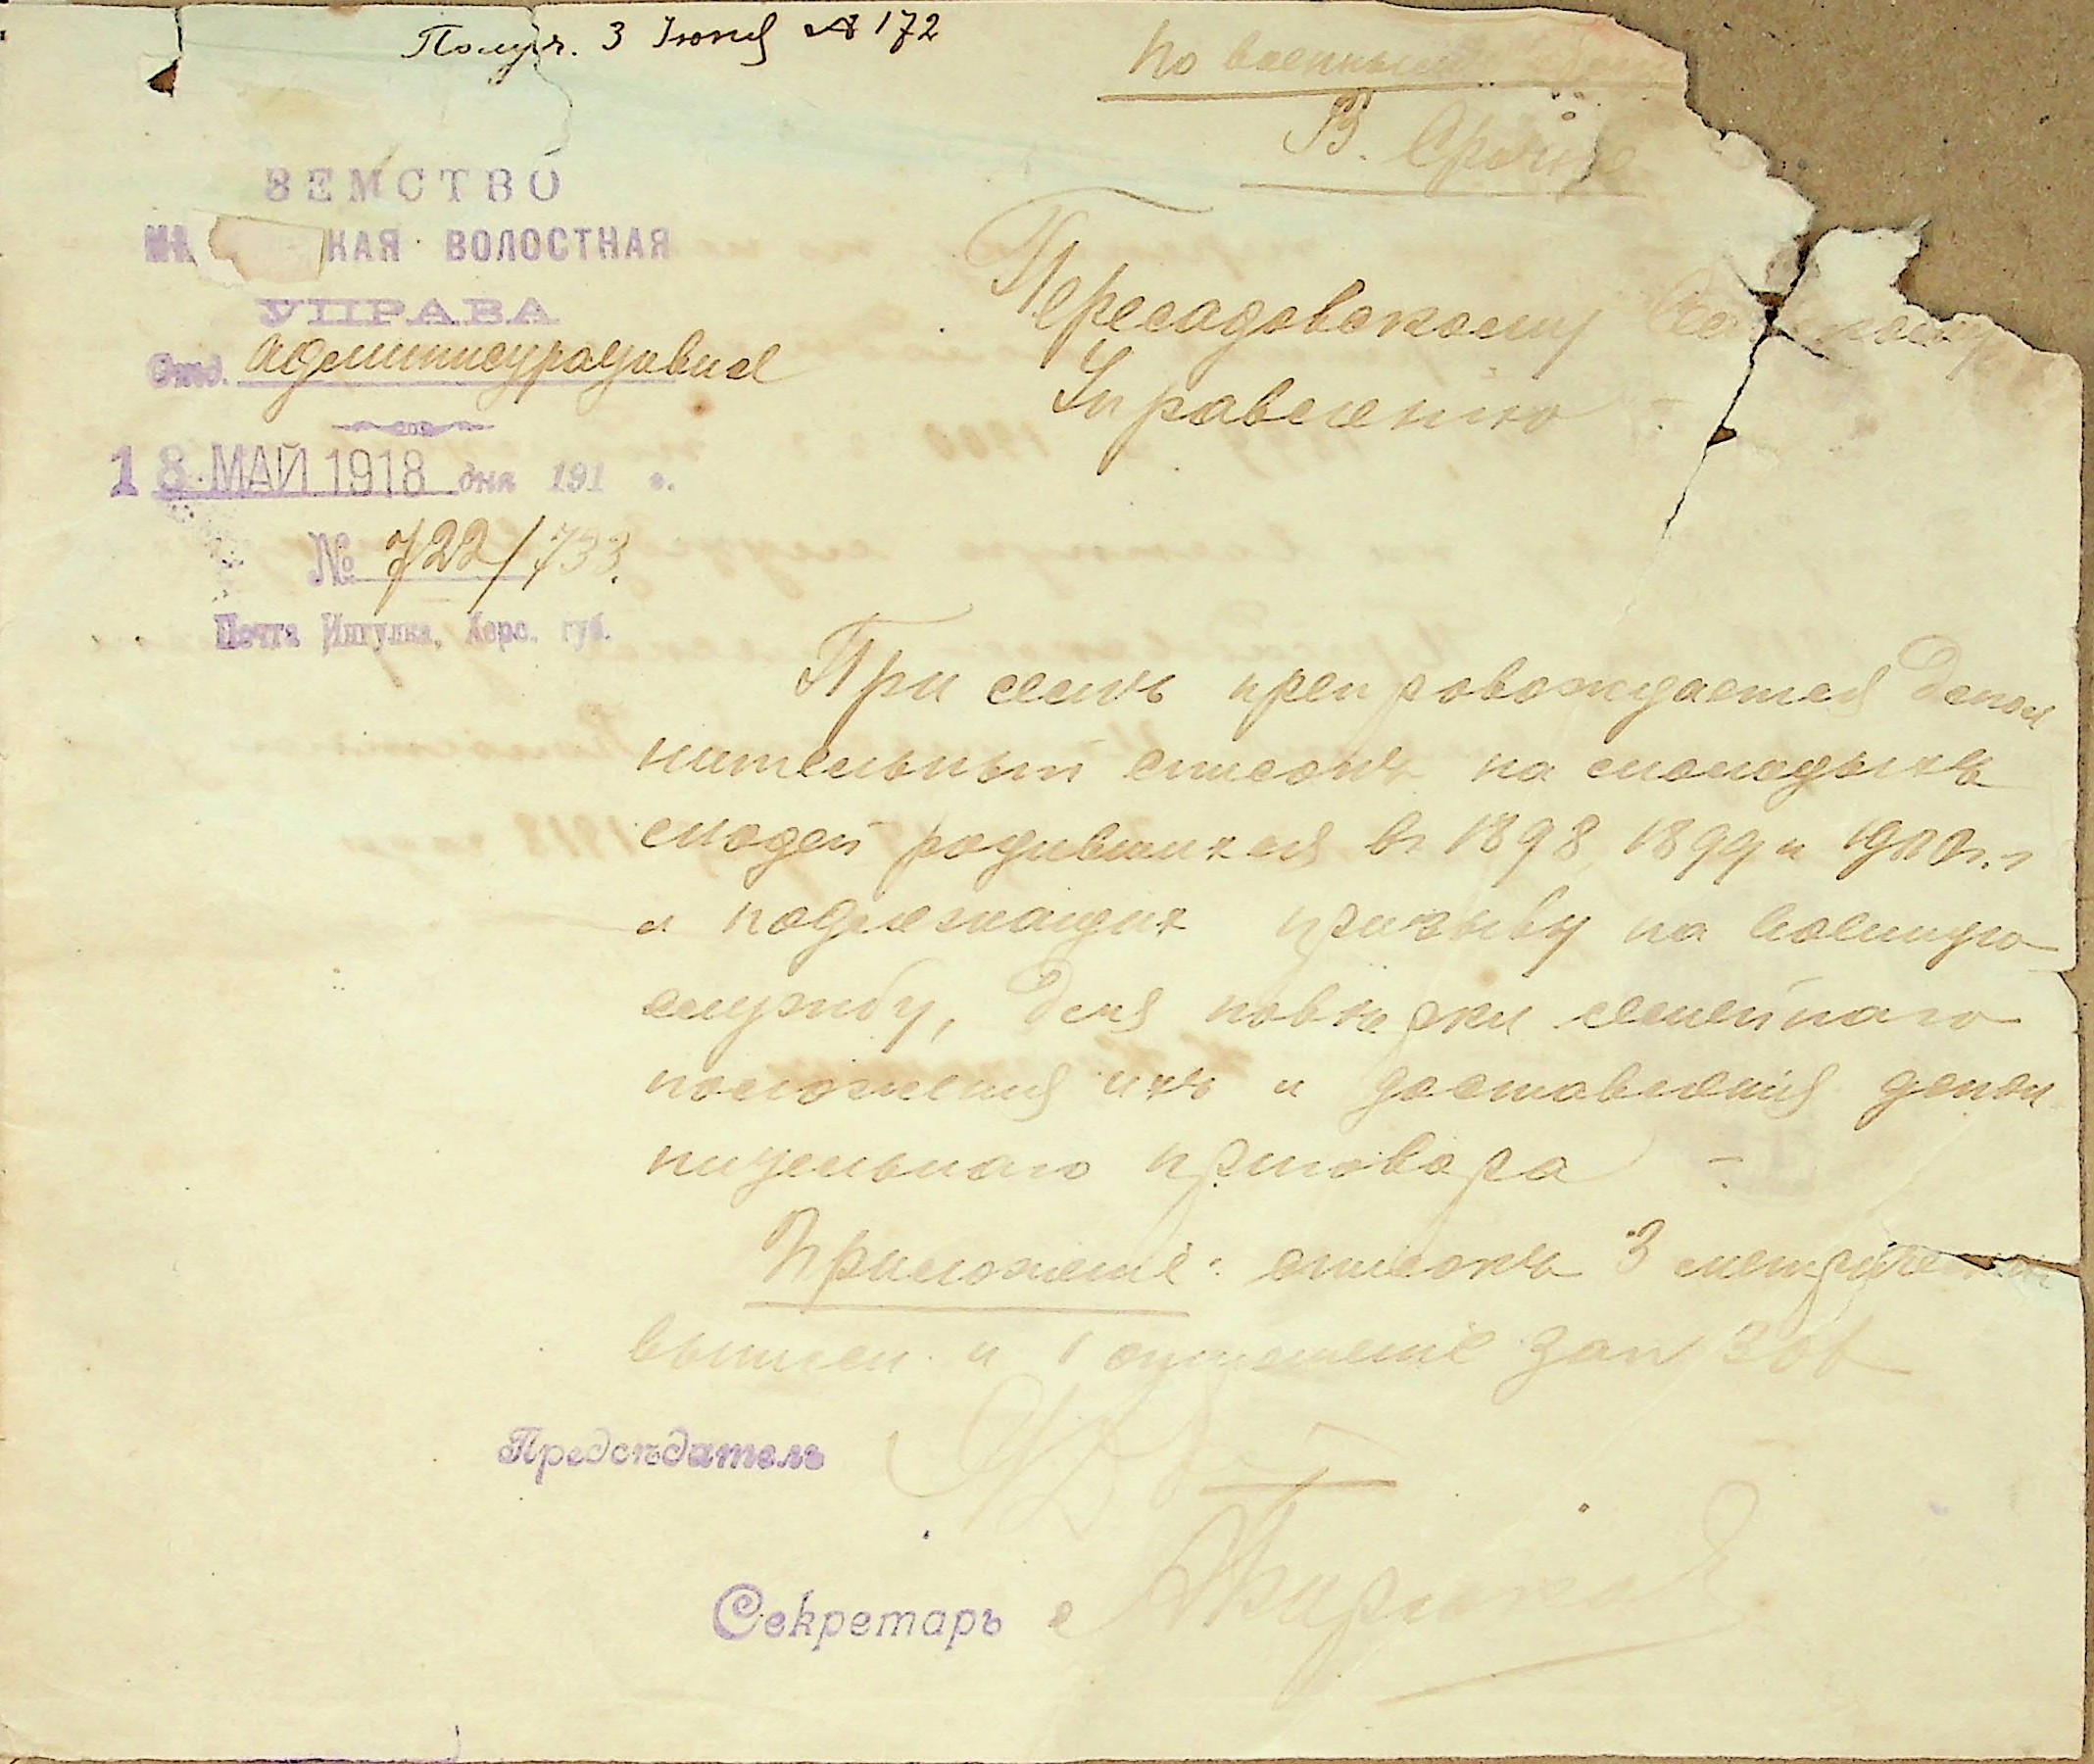 Получ. 3 Іюня № 172
По военным
В. Срочно
ЗЕМСТВО
КАЯ ВОЛОСТНАЯ
УПРАВА
Отд. Административн
18 МАЙ 1918 дня 191 г.
№ 722/733.
Почта Ингулка, Херс. губ.
Пересадовскому
Управлению
При семъ препровождается допол
нительный списокъ на молодыхъ
людей родившихся в 1898, 1899 и 1900 г.г
и подлежащих призыву на военную
службу, для повѣрки семейнаго
положенія ихъ и доставленія допол
нительнаго приговора
Приложеніе: списокъ 3 метрическ
выписи и 1 отношеніе за №
Предсѣдатель
Секретарь